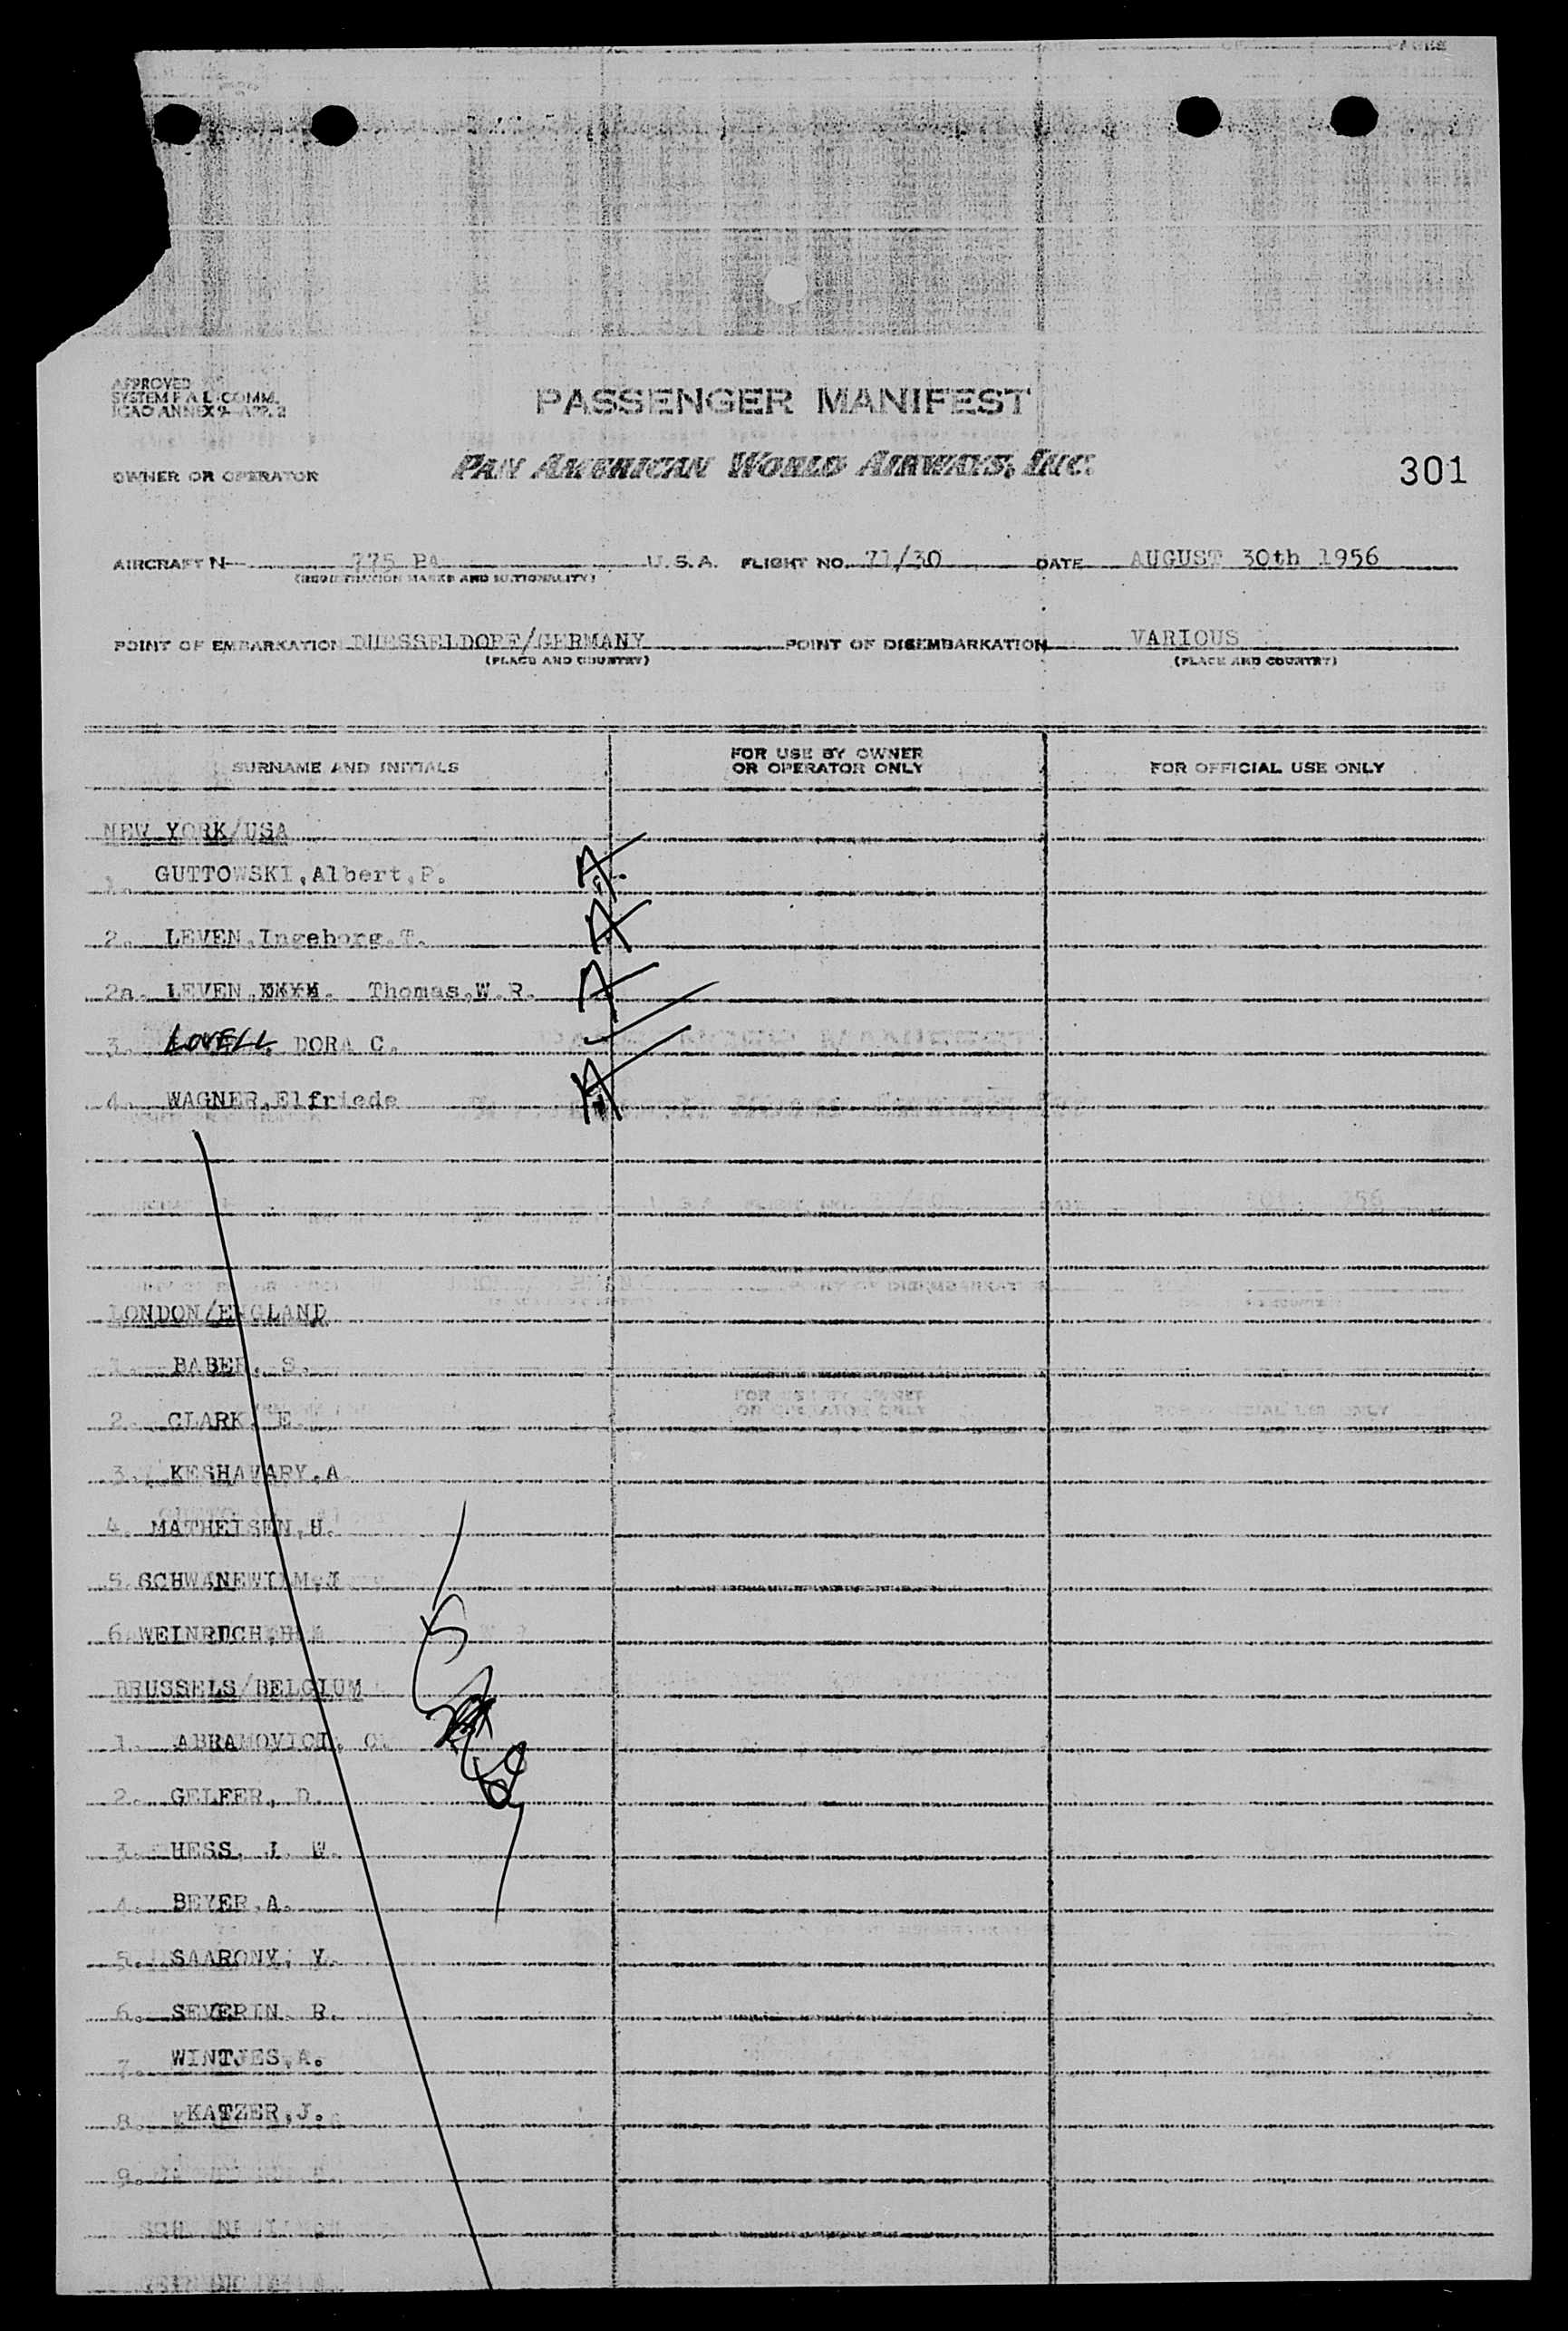 APPROVED
SYSTEM F A L COMM.
ICAO ANNEX 9—APP. 2
PASSENGER MANIFEST
OWNER OR OPERATOR
PAN AMERICAN WORLD AIRWAYS, INC.
301
AIRCRAFT N 775 PA U. S. A. FLIGHT NO. 71/30 DATE AUGUST 30th 1956
(REGISTRATION MARKS AND NATIONALITY)
POINT OF EMBARKATION DUESSELDORF/GERMANY POINT OF DISEMBARKATION VARIOUS
(PLACE AND COUNTRY) (PLACE AND COUNTRY)
SURNAME AND INITIALS
FOR USE BY OWNER
OR OPERATOR ONLY
FOR OFFICIAL USE ONLY
NEW YORK/USA
1. GUTTOWSKI,Albert,P. A
2. LEVEN,Ingeborg.T. A
2a. LEVEN, Thomas,W.R. A
3. LOVELL, DORA C.
4. WAGNER,Elfriede A
LONDON/ENGLAND
1. BABER, S.
2. CLARK, E.
3. KESHAVARY,A
4. MATHEISEN,H.
5.SCHWANEWILM,J
6.WEINRUCH,H
BRUSSELS/BELGIUM
1. ABRAMOVICI, C.
2. GELFER, D.
3. HESS, J. W.
4. BEYER,A.
5. SAARONY, Y.
6. SEVERIN. R.
7. WINTJES,A.
8. KATZER,J.
9.